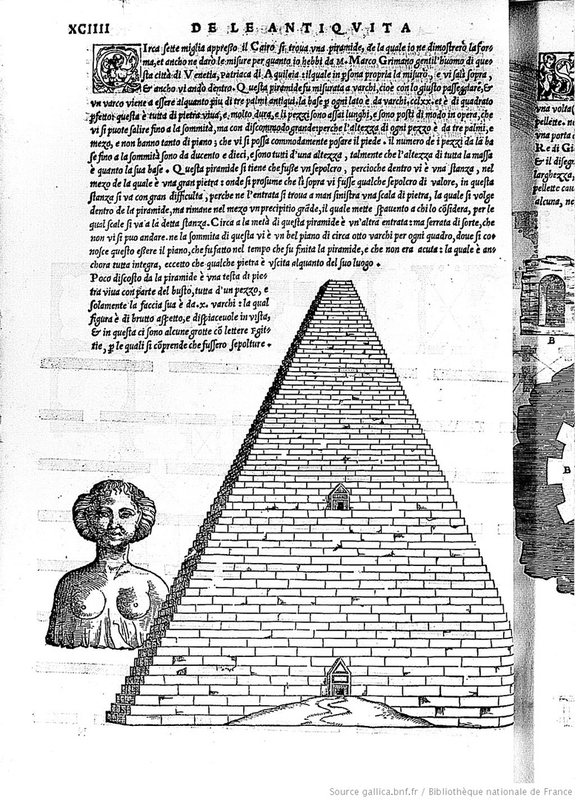 XCIIII DE LE ANTIQVITA
CIrca sette miglia appresso il Cairo si troua vna piramide, de la quale io ne dimostrerò la for
ma, et ancho ne darò le misure per quanto io hebbi da M. Marco Grimano gentil'huomo di que
sta città di Venetia, patriaca di Aquileia, il quale in psona propria la misurò, e vi salì sopra,
& ancho vi andò dentro. Questa piramide fu misurata a varchi, cioè con lo giusto passeggiare, &
vn varco viene a essere alquanto piu di tre palmi antiqui, la base p ogni lato è da varchi, cclxx. et è di quadrato
pfetto: questa è tutta di pietra viua, e molto dura, e li pezzi sono assai lunghi, e sono posti di modo in opera, che
vi si puote salire fino a la sommità, ma con discommodo grande: perche l'altezza di ogni pezzo è da tre palmi, e
mezo, e non hanno tanto di piano; che vi si possa commodamente posare il piede. il numero de i pezzi da la ba
se fino a la sommità sono da ducento e dieci, e sono tutti d'una altezza, talmente che l'altezza di tutta la massa
è quanto la sua base. Questa piramide si tiene che fusse vn sepolcro, percioche dentro vi è vna stanza, nel
mezo de la quale è vna gran pietra: onde si presume che li sopra vi fusse qualche sepolcro di valore, in questa
stanza si va con gran difficulta, perche ne l'entrata si troua a man sinistra vna scala di pietra, la quale si volge
dentro de la piramide, ma rimane nel mezo vn precipitio grãde, il quale mette spauento a chi lo cõsidera, per le
qual scale si va a la detta stanza. Circa a la metà di questa piramide è vn'altra entrata: ma serrata di sorte, che
non vi si puo andare. ne la sommita di questa vi è vn bel piano di circa otto varchi per ogni quadro, doue si co
nosce questo essere il piano, che fu fatto nel tempo che fu finita la piramide, e che non era acuta: la quale è an
chora tutta integra, eccetto che qualche pietra è vscita alquanto del suo luogo.
Poco discosto da la piramide è vna testa di pie
tra viua con parte del busto, tutta d'un pezzo, e
solamente la faccia sua è da .x. varchi: la qual
figura è di brutto aspetto, e dispiaceuole in vista,
& in questa ci sono alcune grotte cõ lettere Egit-
tie, p le quali si cõprende che fussero sepolture.
vna volta
pellette. ne
vna porta
RE di Gi
& il diseg
larghezza,
pellette cau
alcuna, ne
B
B
Source gallica.bnf.fr / Bibliothèque nationale de France